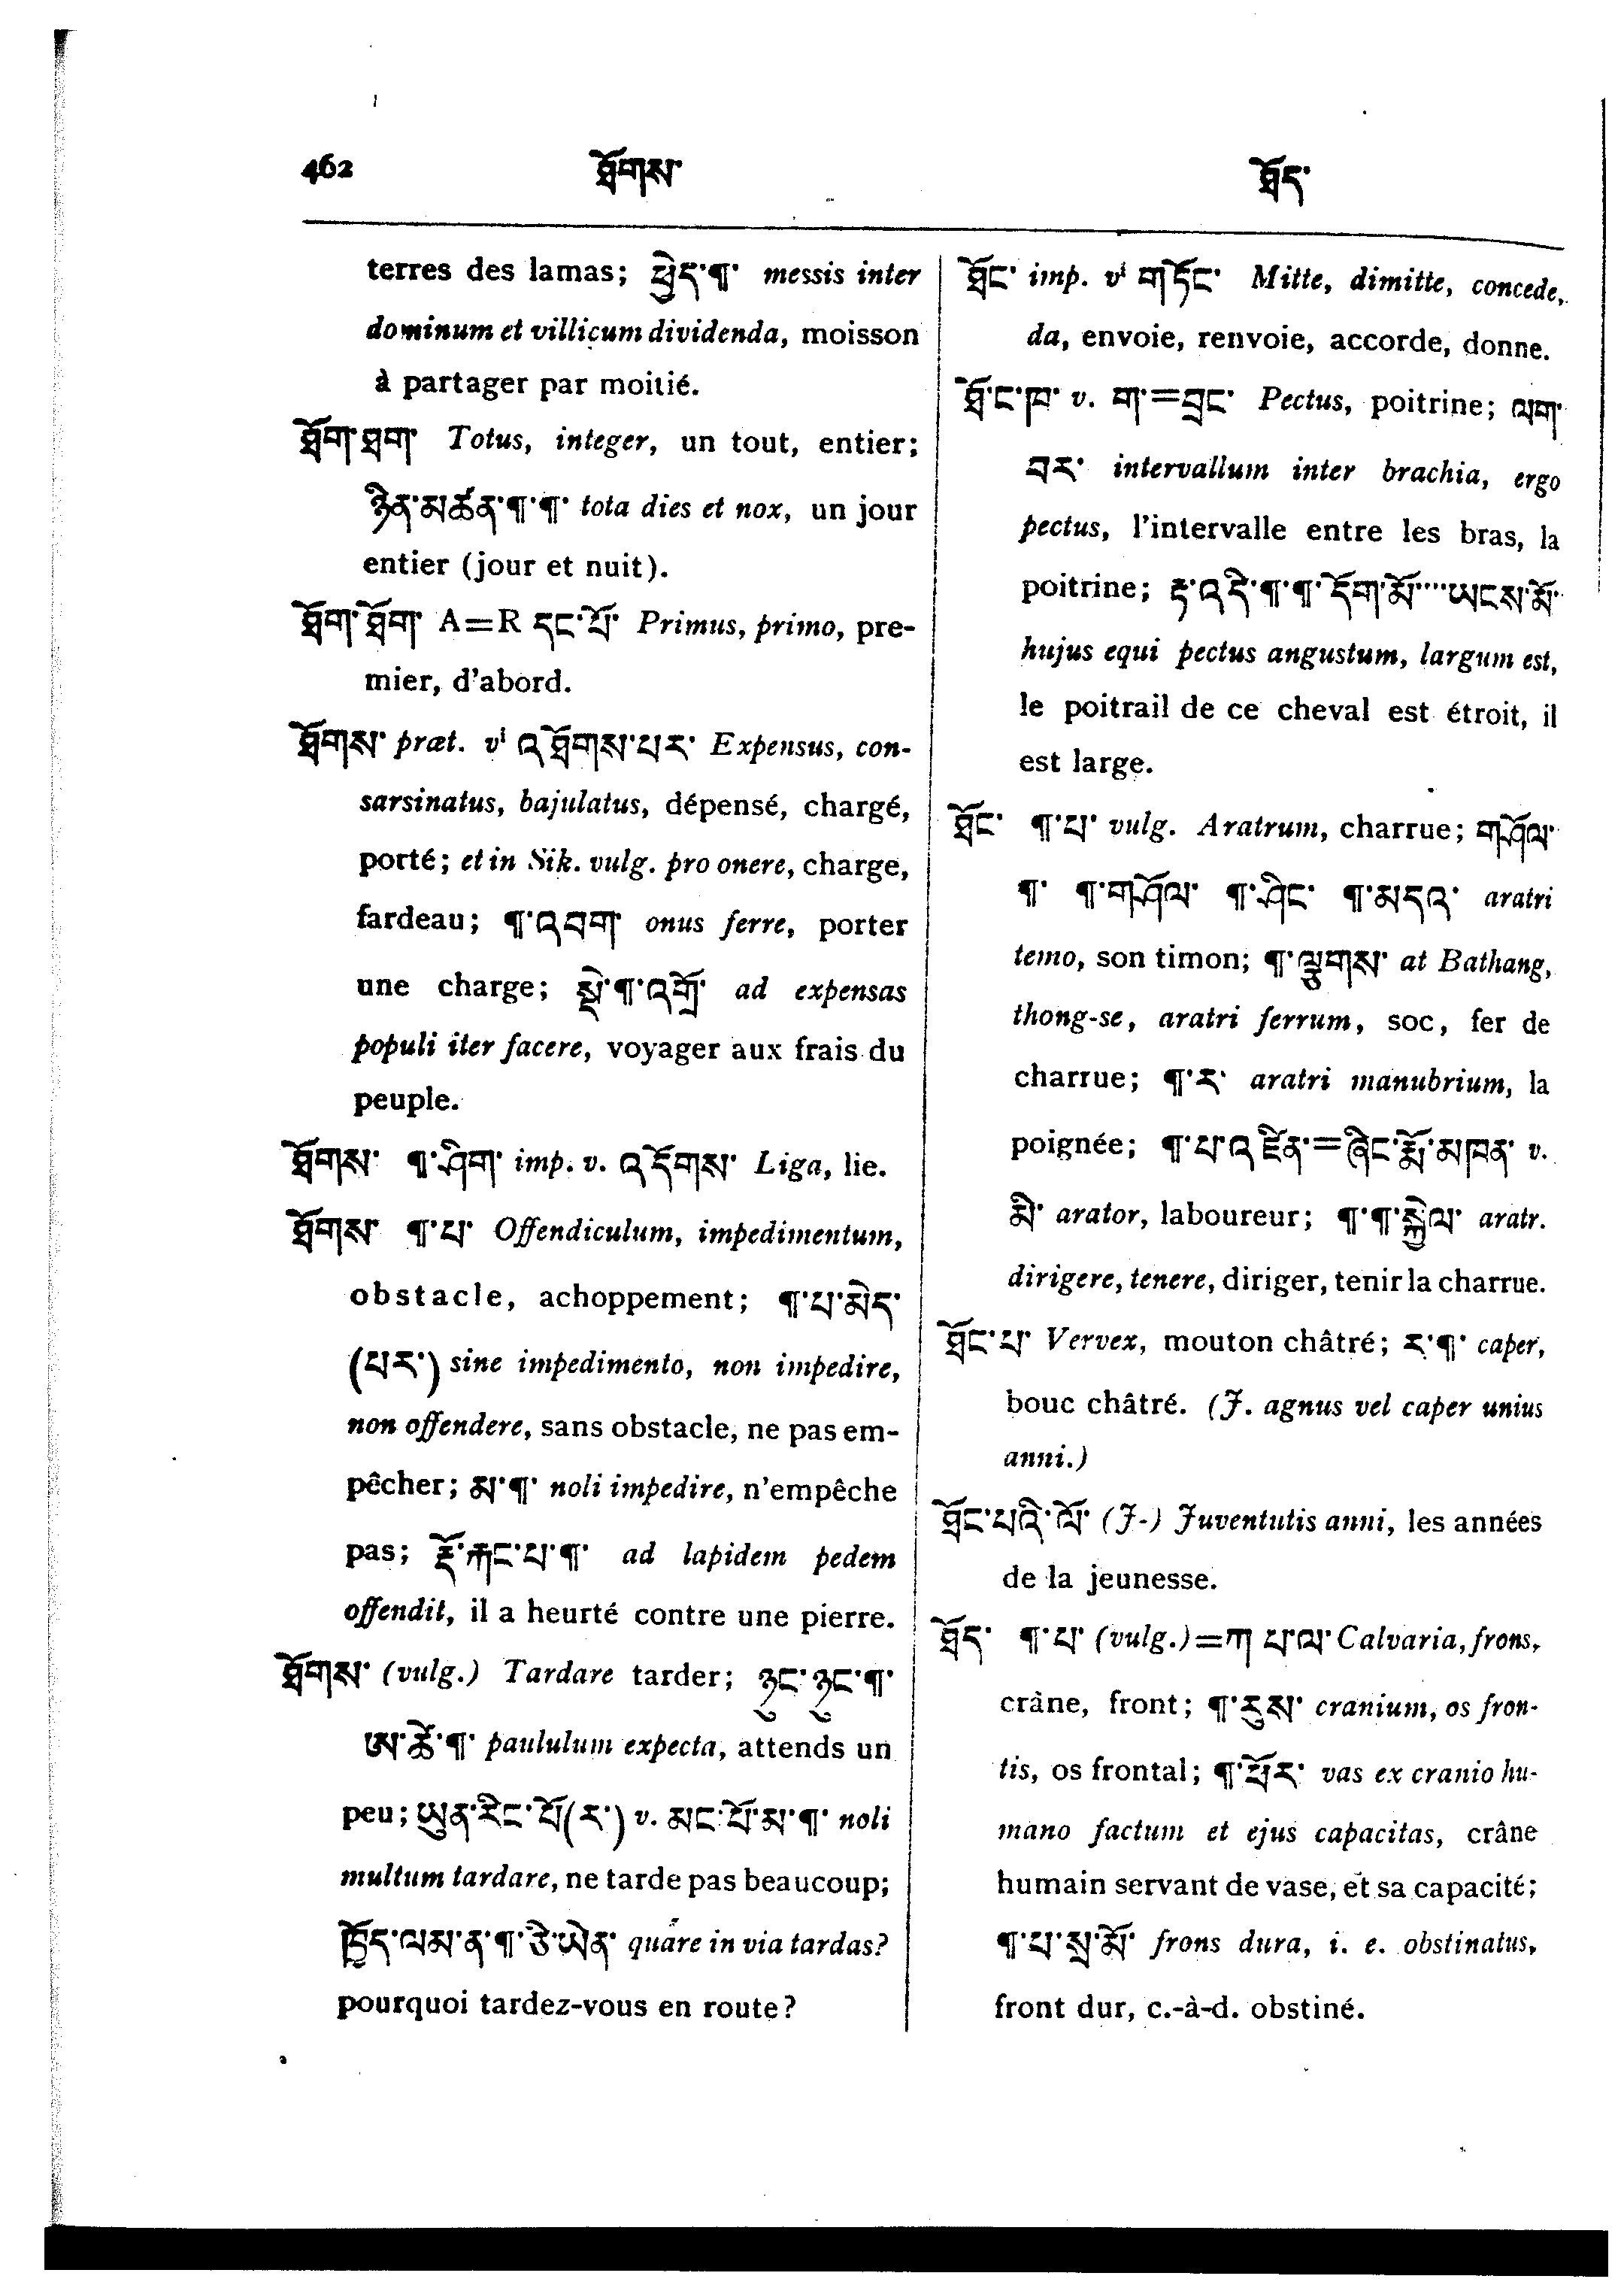 462 ཐོགས་ ཐོད་
terres des lamas; ཕྱེད་¶་ messis inter
dominum et villicum dividenda, moisson
à partager par moitié.
ཐོག་ཐག་ Totus, integer, un tout, entier;
ཉིན་མཚན་¶་¶་ tota dies et nox, un jour
entier (jour et nuit).
ཐོག་ཐོག་ A=R དང་པོ་ Primus, primo, pre-
mier, d'abord.
ཐོགས་ præt. vⁱ འཐོགས་པར་ Expensus, con-
sarsinatus, bajulatus, dépensé, chargé,
porté; et in Sik. vulg. pro onere, charge,
fardeau; ¶་འབག་ onus ferre, porter
une charge; སྡེ་¶་འགྲོ་ ad expensas
populi iter facere, voyager aux frais du
peuple.
ཐོགས་ ¶་ཤིག་ imp. v. འདོགས་ Liga, lie.
ཐོགས་ ¶་པ་ Offendiculum, impedimentum,
obstacle, achoppement; ¶་པ་མེད་
(པར་) sine impedimento, non impedire,
non offendere, sans obstacle, ne pas em-
pêcher; མ་¶་ noli impedire, n'empêche
pas; རྡོ་རྐང་པ་¶་ ad lapidem pedem
offendit, il a heurté contre une pierre.
ཐོགས་ (vulg.) Tardare tarder; ཉུང་ཉུང་¶་
ཨ་ཚེ་¶་ paululum expecta, attends un
peu; ཡུན་རིང་པོ(ར་) v. མང་པོ་མ་¶་ noli
multum tardare, ne tarde pas beaucoup;
ཁྱོད་ལམ་ན་¶་ཅེ་ཡེན་ quare in via tardas?
pourquoi tardez-vous en route?
ཐོང་ imp. vⁱ གཏོང་ Mitte, dimitte, concede,
da, envoie, renvoie, accorde, donne.
ཐོ་ང་ཁ་ v. ག་=བྲང་ Pectus, poitrine; ལག་
བར་ intervallum inter brachia, ergo
pectus, l'intervalle entre les bras, la
poitrine; རྟ་འདི་¶་¶་དོག་མོ་····ཡངས་མོ་
hujus equi pectus angustum, largum est,
le poitrail de ce cheval est étroit, il
est large.
ཐོང་ ¶་པ་ vulg. Aratrum, charrue; གཤོལ་
¶་ ¶་གཤོལ་ ¶་ཤིང་ ¶་མདའ་ aratri
temo, son timon; ¶་ལྕགས་ at Bathang,
thong-se, aratri ferrum, soc, fer de
charrue; ¶་ར་ aratri manubrium, la
poignée; ¶་པ་འཛིན་=ཞིང་རྨོ་མཁན་ v.
མི་ arator, laboureur; ¶་¶་སྐྱེལ་ aratr.
dirigere, tenere, diriger, tenir la charrue.
ཐོང་པ་ Vervex, mouton châtré; ར་¶་ caper,
bouc châtré. (J. agnus vel caper unius
anni.)
ཐོང་པའི་ལོ་ (J-) Juventutis anni, les années
de la jeunesse.
ཐོད་ ¶་པ་ (vulg.)=ཀ པ་ལ་ Calvaria, frons,
crâne, front; ¶་རུས་ cranium, os fron-
tis, os frontal; ¶་ཕོར་ vas ex cranio hu-
mano factum et ejus capacitas, crâne
humain servant de vase, et sa capacité;
¶་པ་སྲ་མོ་ frons dura, i. e. obstinatus,
front dur, c.-à-d. obstiné.